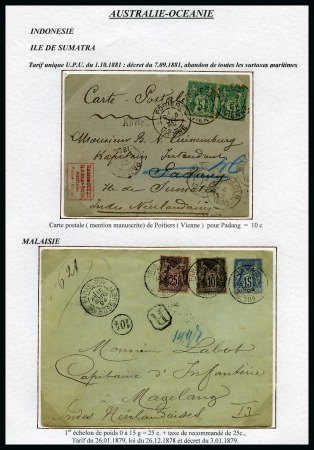 AUSTRALIE-OCEANIE
INDONESIE
ILE DE SUMATRA
Tarif unique U.P.U. du 1.10.1881 : décret du 7.09.1881, abandon de toutes les surtaxes maritimes
Carte Postale
Monsieur B. A.
Kapitein
Padang
Ile de Sumatra
Indes Néerlandaises
Carte postale ( mention manuscrite) de Poitiers ( Vienne ) pour Padang = 10 c
MALAISIE
621
25 10 15
104
R
Monsieur Labot
Capitaine d'Infanterie
à Magelang
Indes Néerlandaises
1er échelon de poids 0 à 15 g = 25 c. + taxe de recommandé de 25c.,
Tarif du 26.01.1879, loi du 26.12.1878 et décret du 3.01.1879.